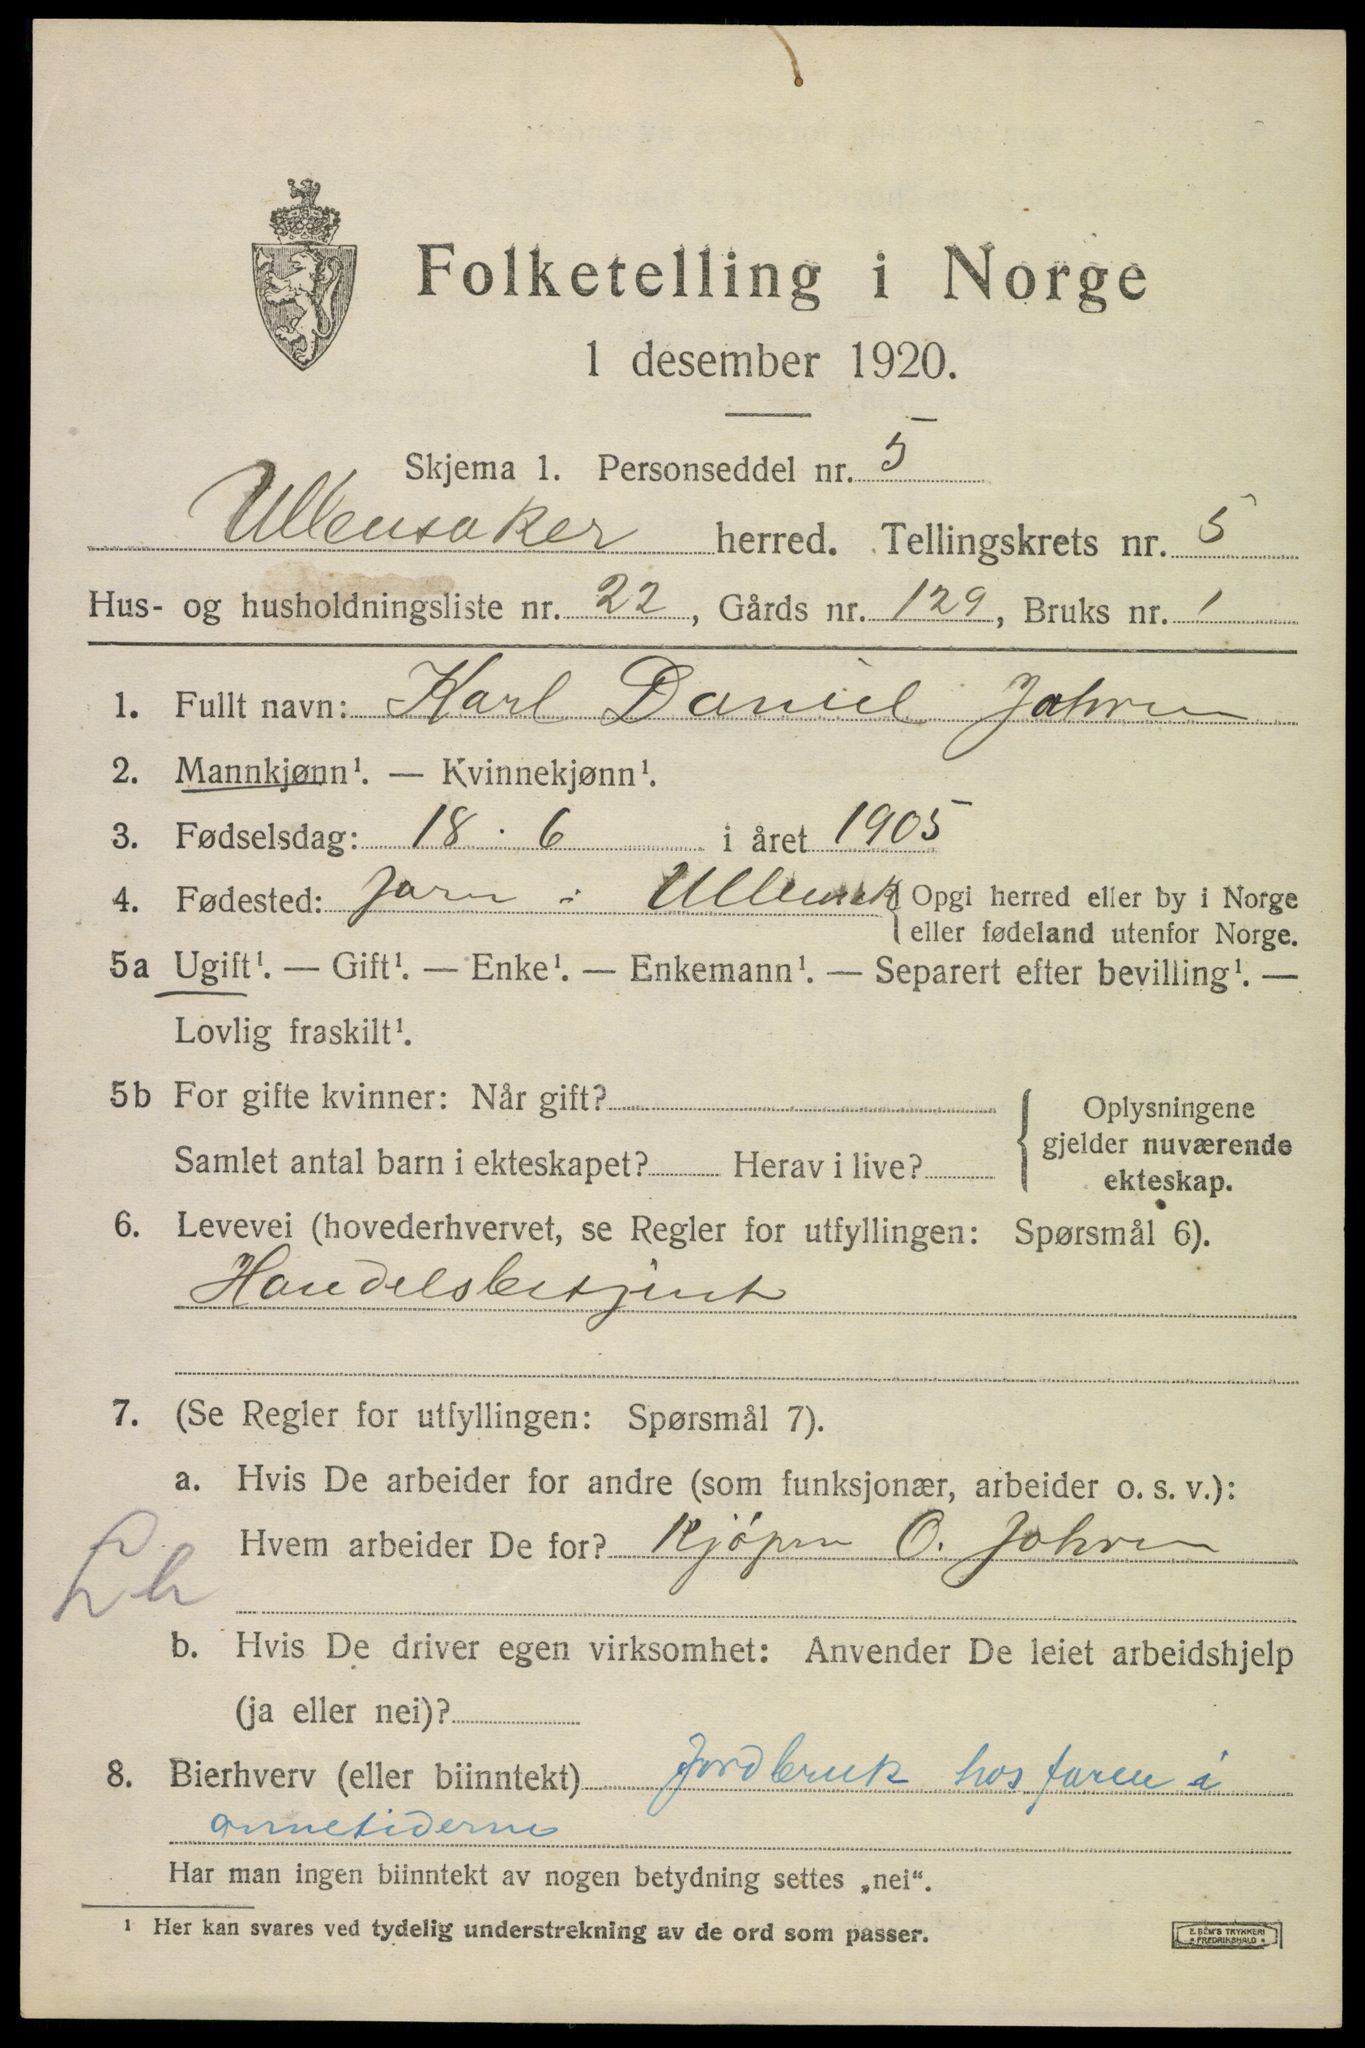 Folketelling i Norge
1 desember 1920.
Skjema 1. Personseddel nr. 5
Ullensaker herred. Tellingskrets nr. 5
Hus- og husholdningsliste nr. 22, Gårds nr. 129, Bruks nr. 1
1. Fullt navn: Karl Daniel Jahren
2. Mannkjønn¹. — Kvinnekjønn¹.
3. Fødselsdag: 18. 6 i året 1905
4. Fødested: Jaren i Ullensak { Opgi herred eller by i Norge
eller fødeland utenfor Norge.
5a Ugift¹. — Gift¹. — Enke¹. — Enkemann¹. — Separert efter bevilling¹. —
Lovlig fraskilt¹.
5b For gifte kvinner: Når gift?
Samlet antal barn i ekteskapet? Herav i live?
{ Oplysningene
gjelder nuværende
ekteskap.
6. Levevei (hovederhvervet, se Regler for utfyllingen: Spørsmål 6).
Handelsbetjent
7. (Se Regler for utfyllingen: Spørsmål 7).
a. Hvis De arbeider for andre (som funksjonær, arbeider o. s. v.):
Hvem arbeider De for? Kjöpm O. Jahren
b. Hvis De driver egen virksomhet: Anvender De leiet arbeidshjelp
(ja eller nei)?
8. Bierhverv (eller biinntekt) Jordbruk hos faren i
onnetiderne
Har man ingen biinntekt av nogen betydning settes „nei“.
¹ Her kan svares ved tydelig understrekning av de ord som passer.
E. SEM'S TRYKKERI
* FREDRIKSHALD *